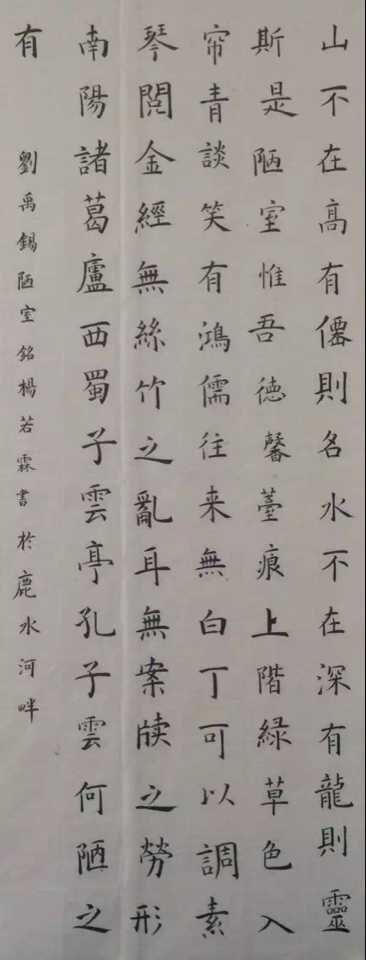 山不在高有僊則名水不在深有龍則靈
斯是陋室惟吾德馨薹痕上階緑草色入
帘青談笑有鴻儒往来無白丁可以調素
琴閲金經無絲竹之亂耳無案牍之勞形
南陽諸葛廬西蜀子雲亭孔子雲何陋之
有
劉禹錫陋室銘楊若霖書於鹿水河畔